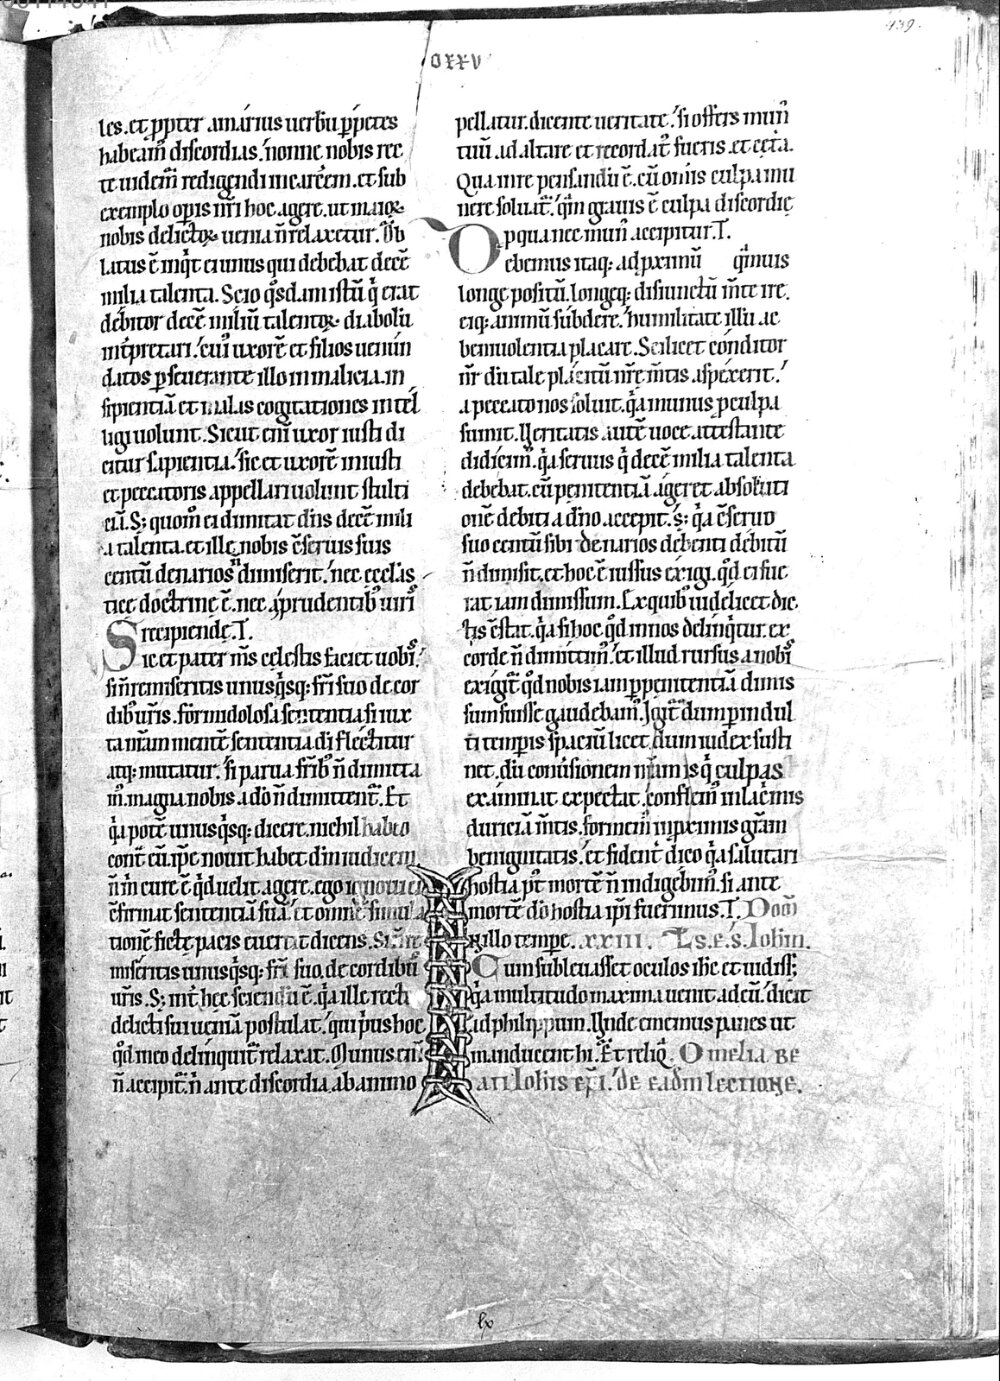 439.
OXXV
les. et ꝓpter amárius uerbũ ꝑpetes
habeam᷒ discordias. nonne nobis rec
te uidem᷒ redigendi in carcẽm. et sub
exemplo opis nr̃i hoc agere. ut maioꝝ
nobis delictoꝝ uenia ñ relaxetur. Ob
latus ẽ inq̇t ei unus qui debebat decẽ
milia talenta. Scio q̊sdam istũ q̇ erat
debitor decẽ miliũ talentoꝝ diabolũ
int̃pretari. cui᷒ uxorẽ et filios uenun
datos ꝑseuerante illo in malicia. in
sipientiã et malas cogitationes intel
ligi uolunt. Sicut eni᷒ uxor iusti di
citur sapientia. sic et uxorẽ iniusti
et peccatoris appellari uolunt stulti
ciã. S; quom᷒ ei dimittat dñs decẽ mili
a talenta. et ille nobis cõseruis suis
centũ denarios ñ dimiserit. nec eccl̃ias
ticę doctrinę ẽ. nec a prudentib᷒ uiri᷒
recipiendę. T.
Sic et pater m̃s cęlestis faciet uobi᷒.
si ñ remiseritis unusq̇sq; fr̃i suo de cor
dib᷒ ur̃is. formidolosa sententia si iux
ta nr̃am mentẽ sententia di᷒ flectitur
atq; mutatur. si parua fr̃ib᷒ ñ dimitta
m᷒. magna nobis a do᷒ ñ dimittent᷒. Et
q̇a potẽ unusq̇sq; dicere. nichil habeo
cont᷒ eũ. ipse nouit habet dm᷒ iudicem
ñ m᷒ curę ẽ q̇d uelit agere. ego ignoui ei
cõfirmat sententiã suã. et omnẽ simula
tionẽ fictę pacis euertit dicens. Si ñ re
miseritis unusq̇sq; fr̃i suo. de cordibu᷒
ur̃is. S; int᷒ hęc sciendũ ẽ. q̇a ille recti
delicti sui ueniã postulat. qui prius hoc
q̊d in eo delinquit᷒ relaxat. Munus eni᷒
ñ accipit᷒. ñ ante discordia ab animo
pellatur. dicente ueritate. si offers mun᷒
tuũ ad altare et recordat᷒ fueris. et cęta.
Qua in re pensandũ ẽ. cũ om̃is culpa mu
nere soluat᷒. q̃m grauis ẽ culpa discordię
ꝓ qua nec mun᷒ accipitur. T.
Debemus itaq; ad ꝓximũ q̃muis
longe positũ. longeq; disiunctũ m̃te ire.
eiq; animũ subdere. humilitate illũ ac
beniuolentia placare. Scilicet conditor
nr̃ dũ tale placitũ nr̃ę m̃tis aspexerit.
a peccato nos soluit. q̇a munus ꝓ culpa
sumit. Ueritatis autẽ uoce attestante
didicim᷒. q̇a seruus q̇ decẽ milia talenta
debebat. cũ penitentiã ageret absoluti
onẽ debiti a dño accepit. s; q̇a cõseruo
suo centũ sibi denarios debenti debitũ
ñ dimisit. et hoc ẽ iussus exigi. q̊d ei fue
rat iam dimissum. Ex quib᷒ uidelicet dic
tis cõstat. q̇a si hoc q̊d in nos delinq̇tur. ex
corde ñ dimittim᷒. et illud rursus a nobi᷒
exigit᷒ q̊d nobis iam ꝑ penitentiã dimis
sum fuisse gaudebam᷒. Igit᷒ dum ꝑ indul
ti tempis spaciũ licet. dum iudex susti
net. dũ conũsionem nr̃am is q̇ culpas
examinat expectat. conflem᷒ in lacrimis
duriciã m̃tis. formem᷒ in ꝓximis gr̃am
benignitatis. et fident᷒ dico q̇a salutari
hostia p᷒t mortẽ ñ indigebim᷒. si ante
mortẽ do᷒ hostia ipi᷒ fuerimus. T. Dom᷒
In illo tempe. XXIII. Ls. e. s. Iohm᷒.
Cum subleuasset oculos ihc et uidiss;
q̇a multitudo maxima uenit ad eũ. dicit
ad philippum. Unde ememus panes ut
manducent hi. Et reliq̃. Omelia Be
ati Iohis epi᷒. de eadm lectione.
lx